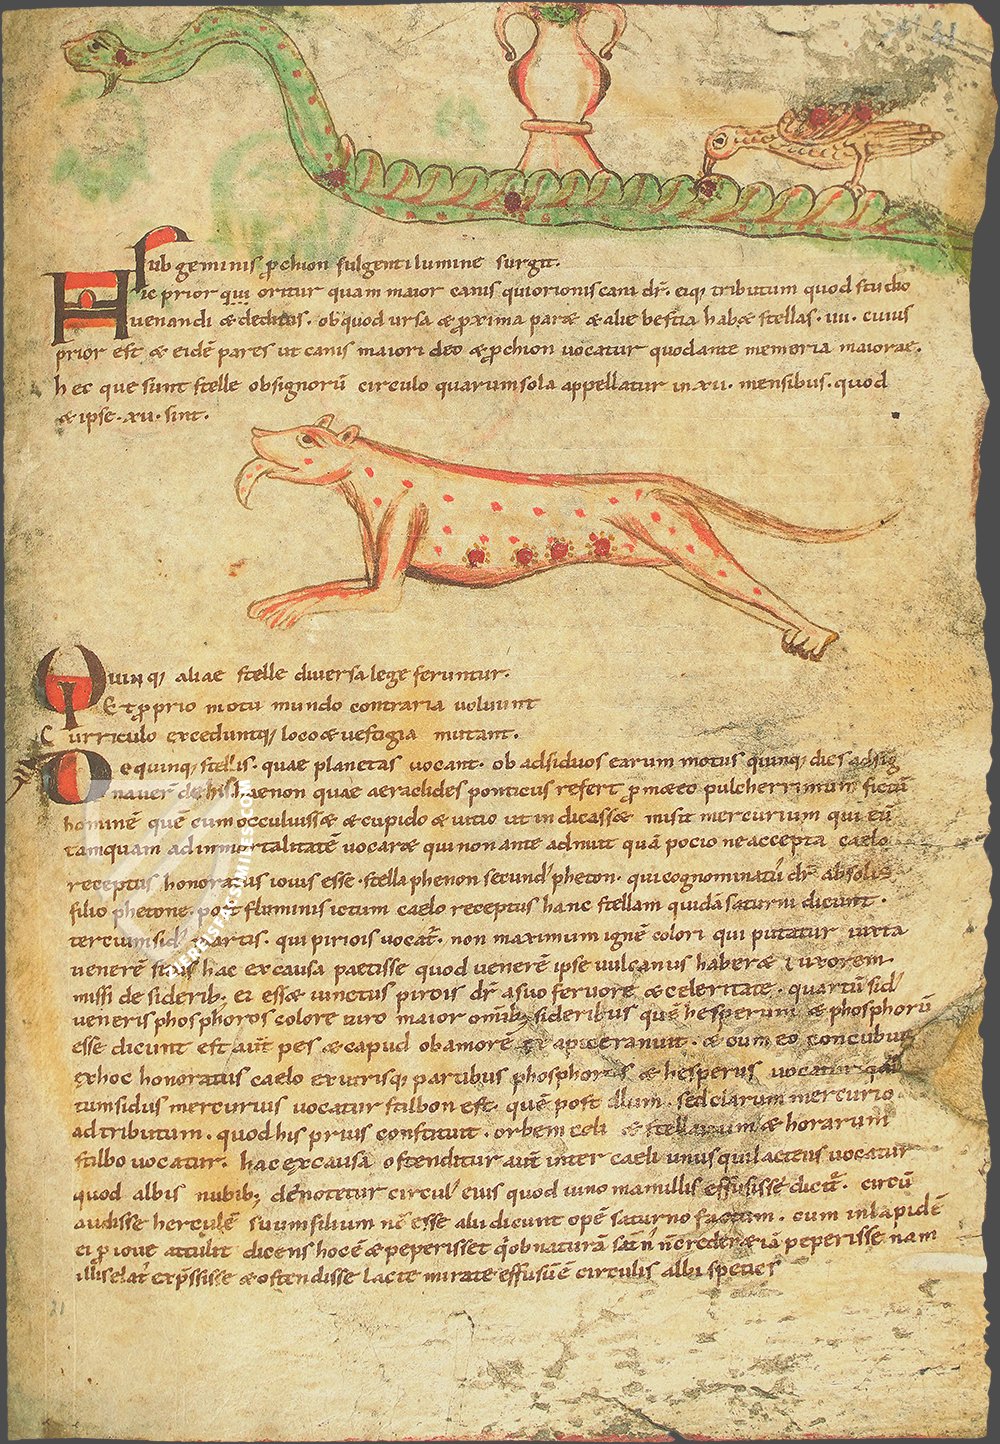 Sub geminis prochion fulgenti lumine surgit.
Hic prior qui oritur quam maior canis qui orionis cani dr. eiq; tributum quod studio
uenandi & deditus. ob quod ursa & proxima par& & alie bestia hab& stellas. IIII. cuius
prior est & eidē partes ut canis maiori deo & prochion uocatur quod ante memoria maior&.
hec que sunt stelle ob signorū circulo quarum sola appellatur in XII. mensibus. quod
& ipse. XII. sint.
Quinq; aliae stelle diuersa lege feruntur.
Et proprio motu mundo contraria uoluunt
Curriculo exceduntq; loco & uestigia mutant.
De quinq; stellis. quae planetas uocant. ob adsiduos earum motus quinq; dies adsig
nauer̄ de his. haenon quae aeraclides ponticus refert prom&eo pulcherrimum fictū
hominē quē cum occuluiss& & cupido & uitio ut indicass& misit mercurium qui eū
tamquam ad inmortalitatē uocar& qui non ante admit quā pocio ne accepta caelo
receptus honoratus iouis esse. stella phenon secund' pheton. qui cognominatur̄ dr̄ absolis
filio phetone. post fluminis ictum caelo receptus hanc stellam quidā saturni dicunt.
tercium sid' martis. qui piriois uocat̄. non maximum ignē colori qui putatur iuxta
uenerē stans hac ex causa paetisse quod uenerē ipse uulcanus haber& uxorem
missi desiderib; ei ess& iunctus pirois dr̄ a suo feruore & celeritate. quartū sid'
ueneris phosphoros colore uiro maior omīb; sideribus quē hesperum & phosphorū
esse dicunt est aut̄ pes & capud ob amorē & cum eo concubuit
ex hoc honoratus caelo ex utrisq; partibus phosphorus & hesperus uocatur
tum sidus mercurius uocatur stilbon est. quē post illum. sed clarum mercurio.
adtributum. quod his prius constituit. orbem celi & stellarum & horarum
stilbo uocatur. hac ex causa ostenditur aut̄ inter caeli unus qui lactens uocatur
quod albis nubib; denotetur circul' eius quod iuno mamillis effusisse dict̄. circū
audisse herculē suum filium nō esse alii dicunt opē saturno factam. cum inlapidē
ei p ioue attulit dicens hoc ē & peperisset
illis elat̄ expssisse & ostendisse lacte mirate effusū ē circulis albi species
21
WWW.FACSIMILES.COM